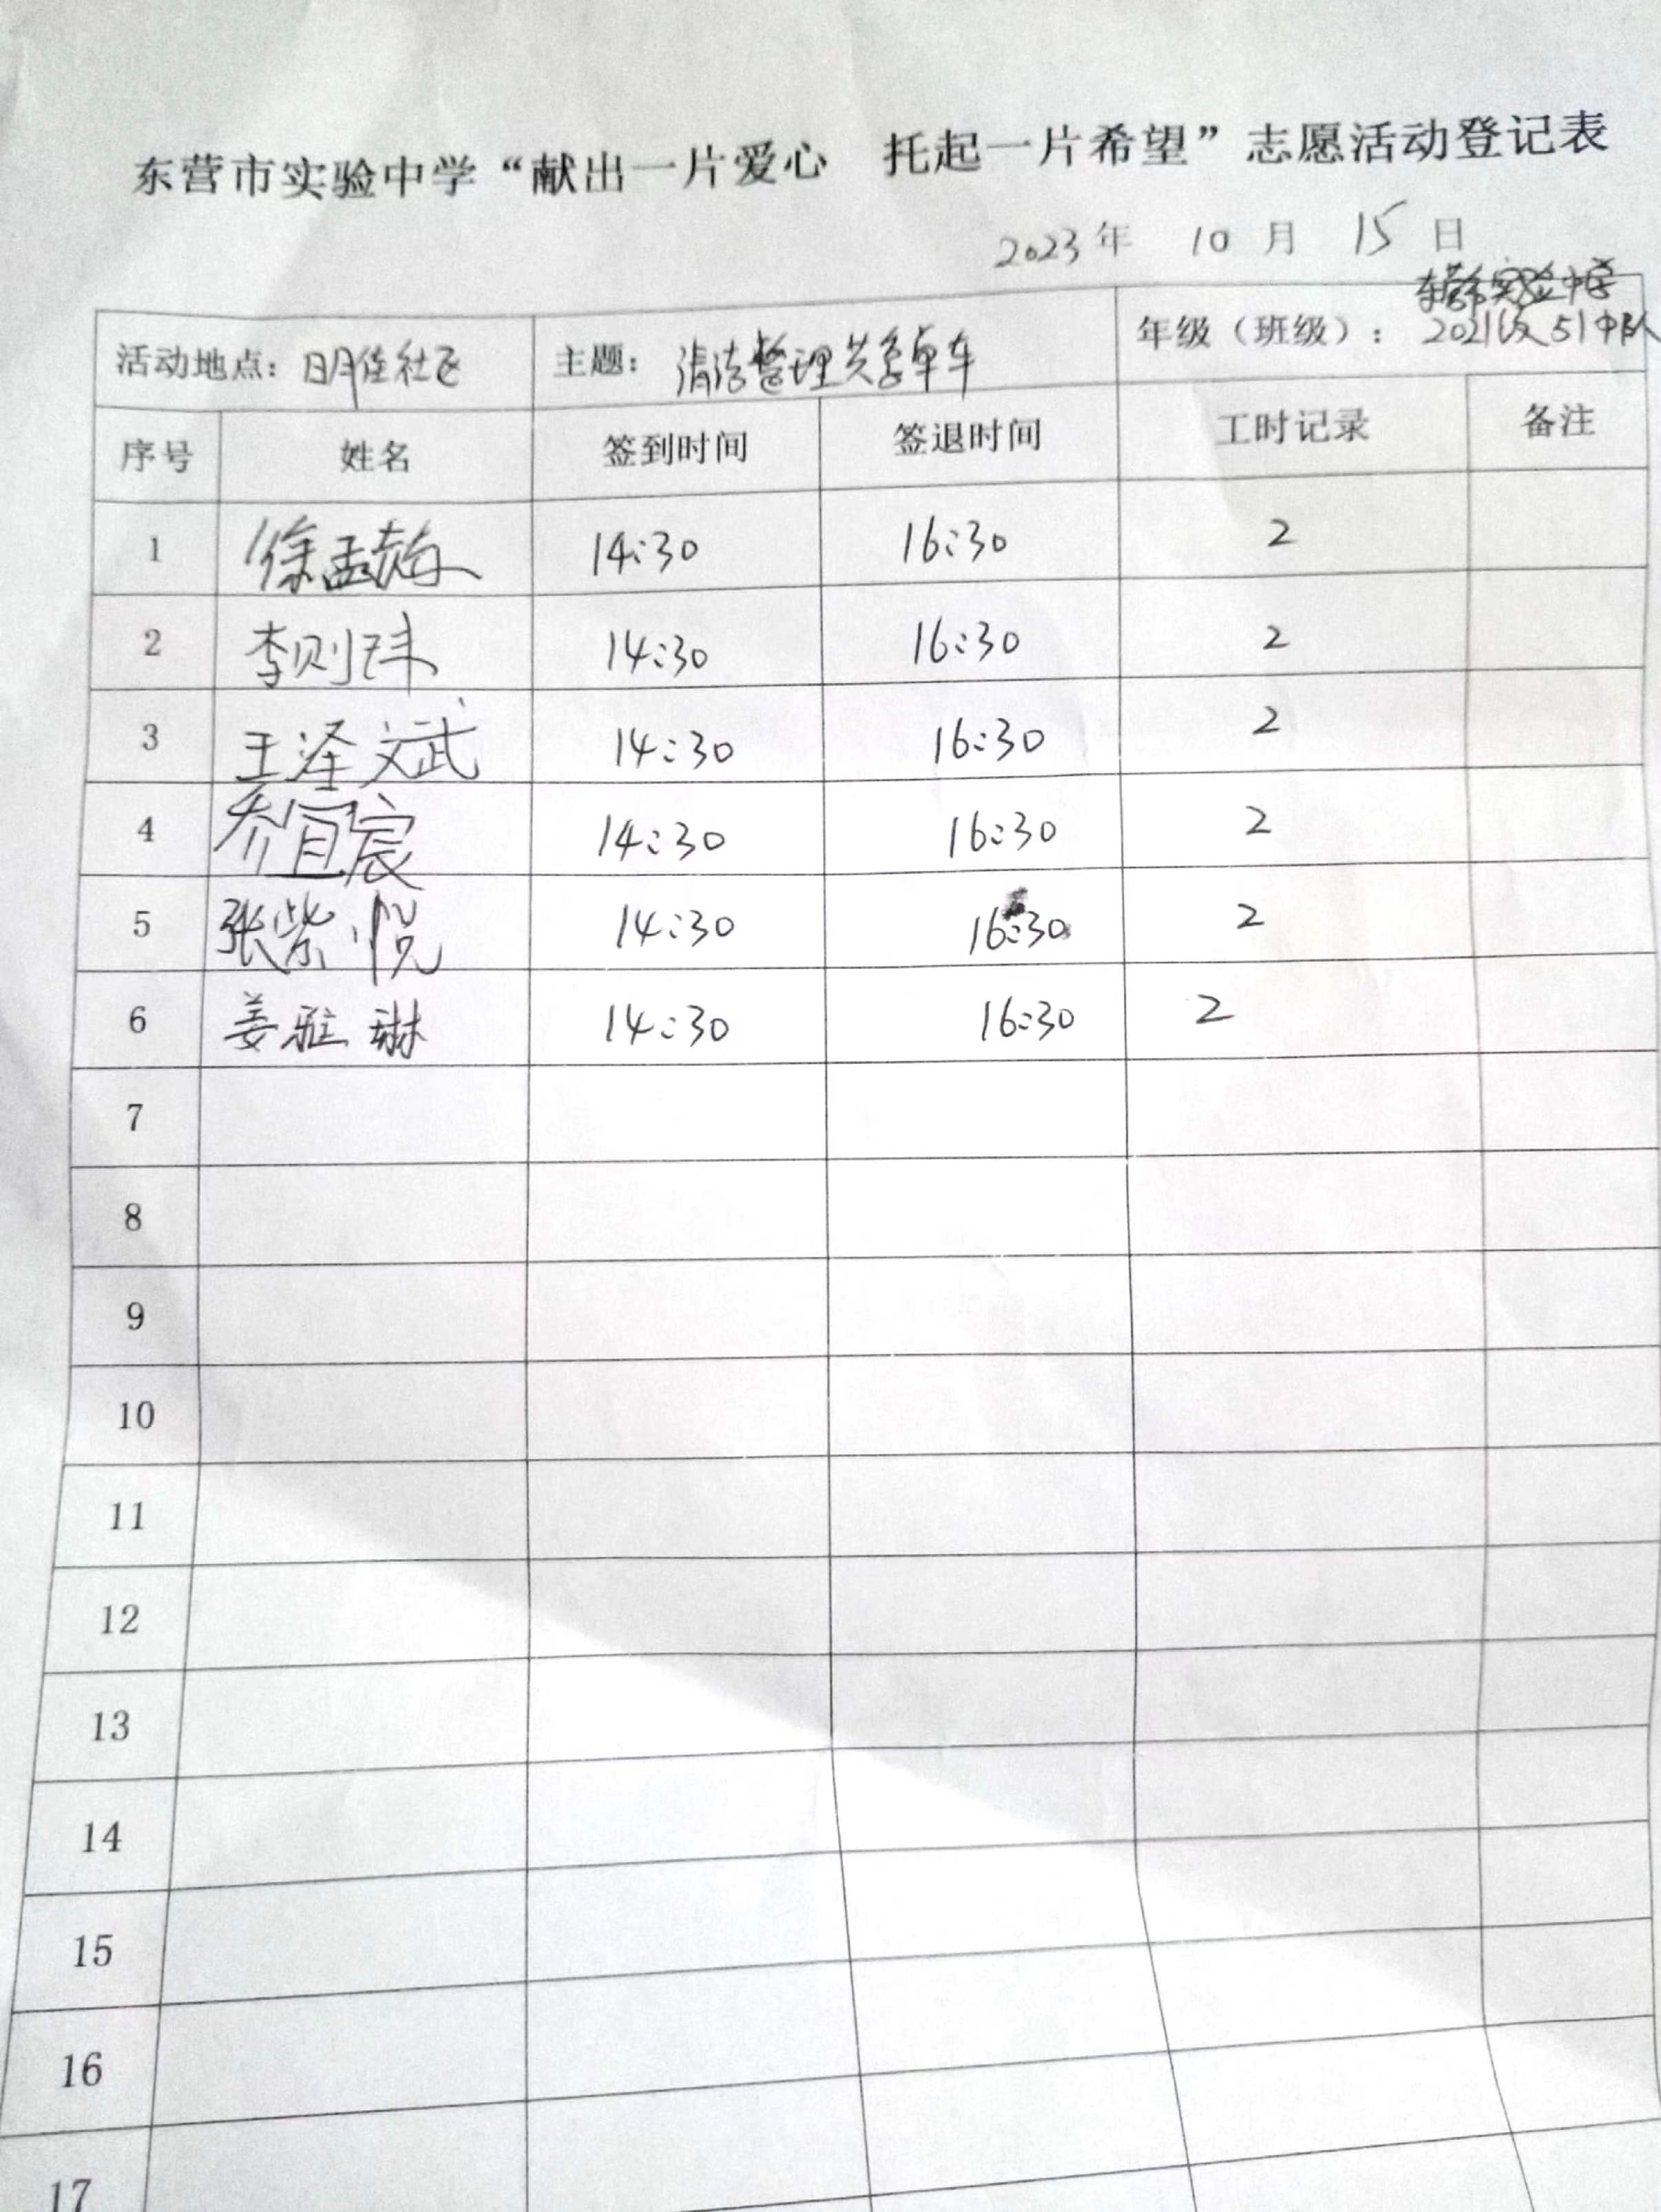 东营市实验中学“献出一片爱心 托起一片希望”志愿活动登记表
2023年 10 月 15 日
东营市实验中学
活动地点：明佳社区 主题：清洁整理共享单车 年级（班级）：2021级51中队
序号 姓名 签到时间 签退时间 工时记录 备注
1 徐孟 14:30 16:30 2
2 李则玮 14:30 16:30 2
3 王泽文斌 14:30 16:30 2
4 乔宜宸 14:30 16:30 2
5 张紫悦 14:30 16:30 2
6 姜雅琳 14:30 16:30 2
7
8
9
10
11
12
13
14
15
16
17